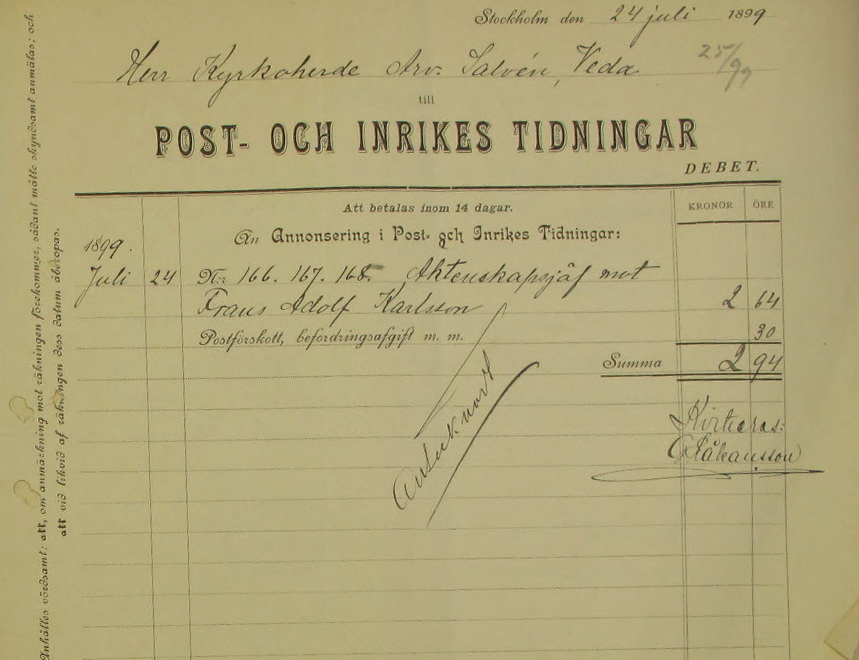 Stockholm den 24 juli 1899
Herr Kyrkoherde Arv. Salvén, Veda
25/7 99
till
POST- OCH INRIKES TIDNINGAR
DEBET.
Att betalas inom 14 dagar.
KRONOR ÖRE
An Annonsering i Post- och Inrikes Tidningar:
1899.
Juli 24 N:r 166. 167. 168. Äktenskapsjäf mot
Frans Adolf Karlsson 2 64
Postförskott, befordringsafgift m. m. 30
Summa 2 94
Kvitteras:
Håkansson
Anhålles vördsamt: att, om anmärkning mot räkningen förekommer, sådant måtte skyndsamt anmälas; och
att vid likvid af räkningen dess datum åberopas.